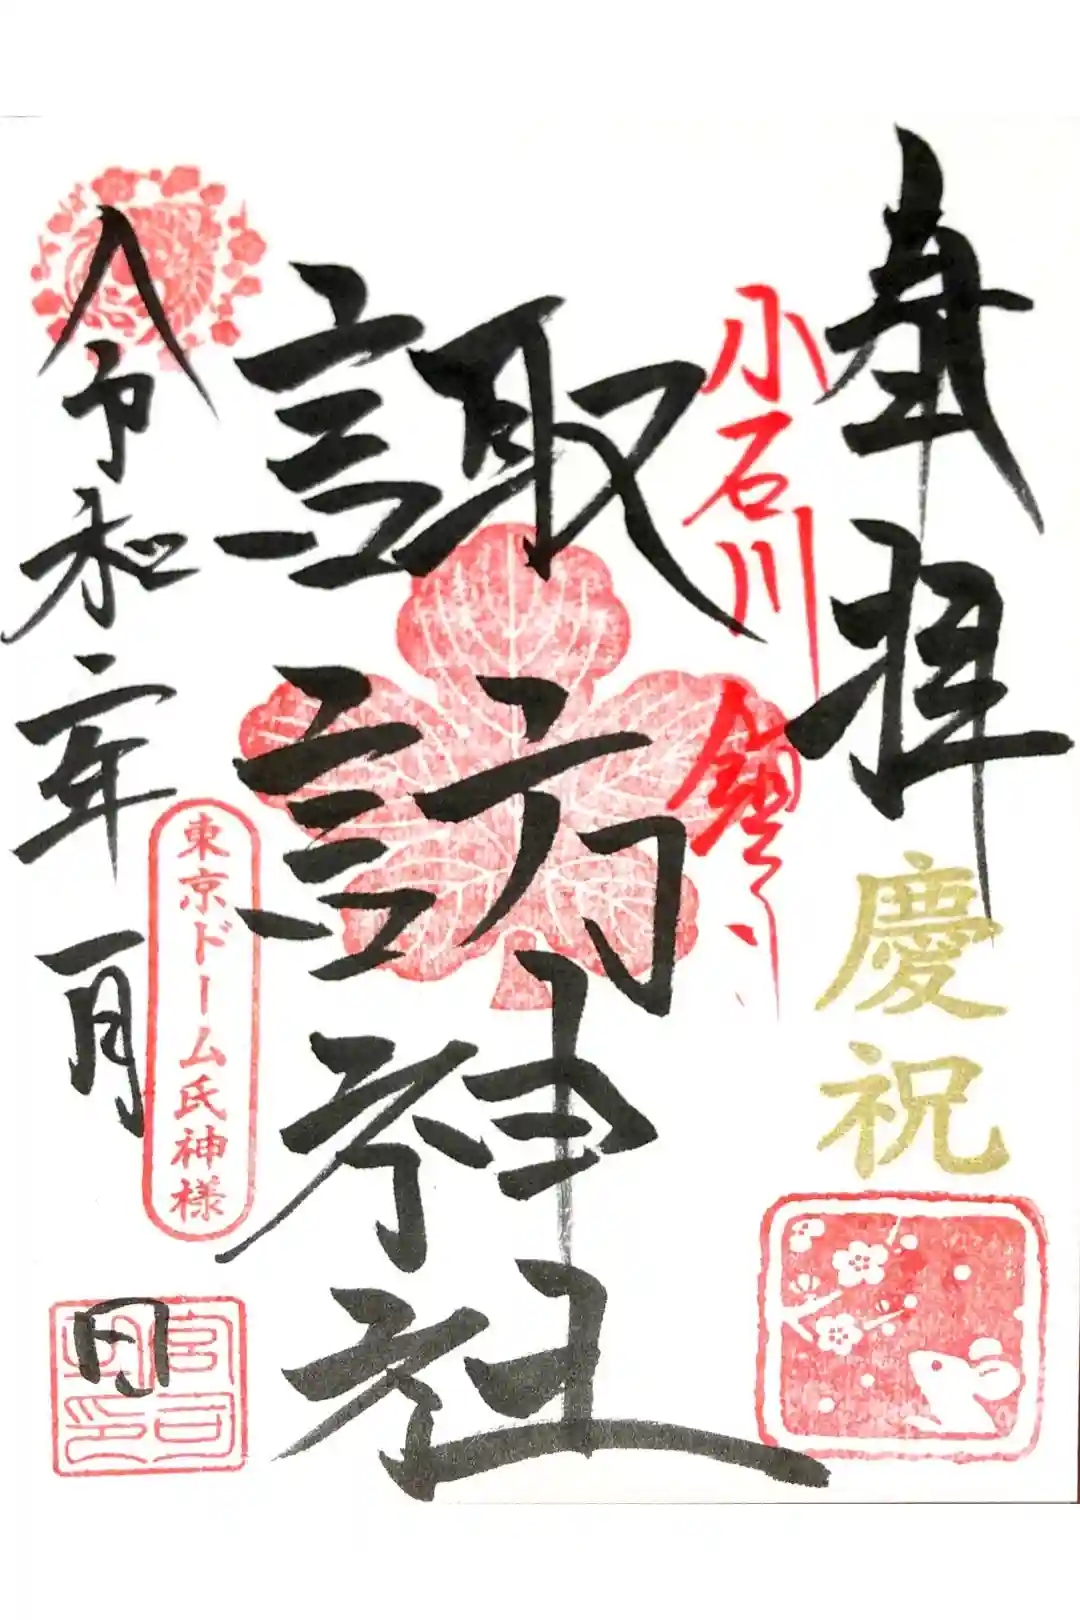 奉拝
慶祝
小石川鎮守
諏訪神社
令和二年一月 日
東京ドーム氏神様